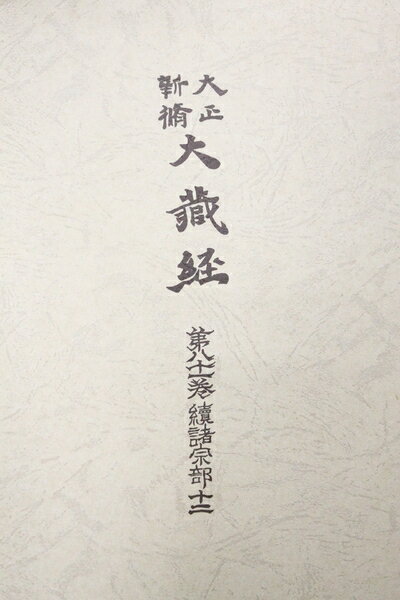 大正
新脩
大藏経
第八十一卷續諸宗部十二